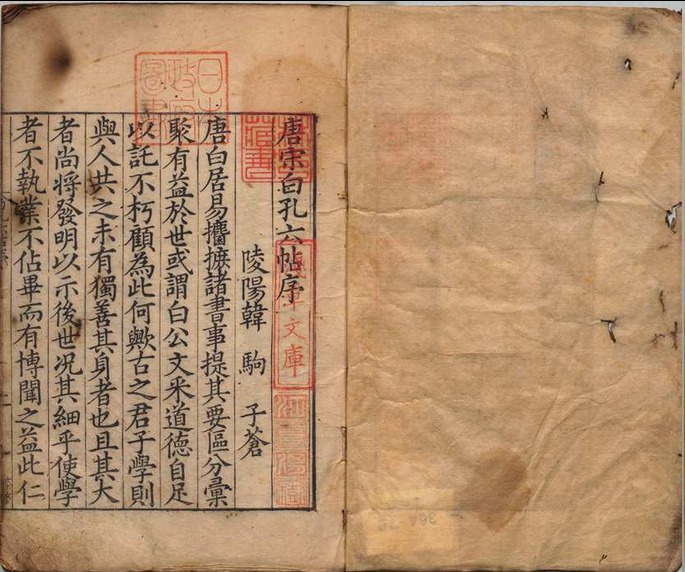 唐宋白孔六帖序
陵陽韓 駒 子蒼
唐白居易攟摭諸書事提其要區分彙
聚有益於世或謂白公文釆道德自足
以託不朽顧為此何歟古之君子學則
與人共之未有獨善其身者也且其大
者尚將發明以示後世况其細乎使學
者不執業不佔畢而有博聞之益此仁
日本
政府
圖書
文庫